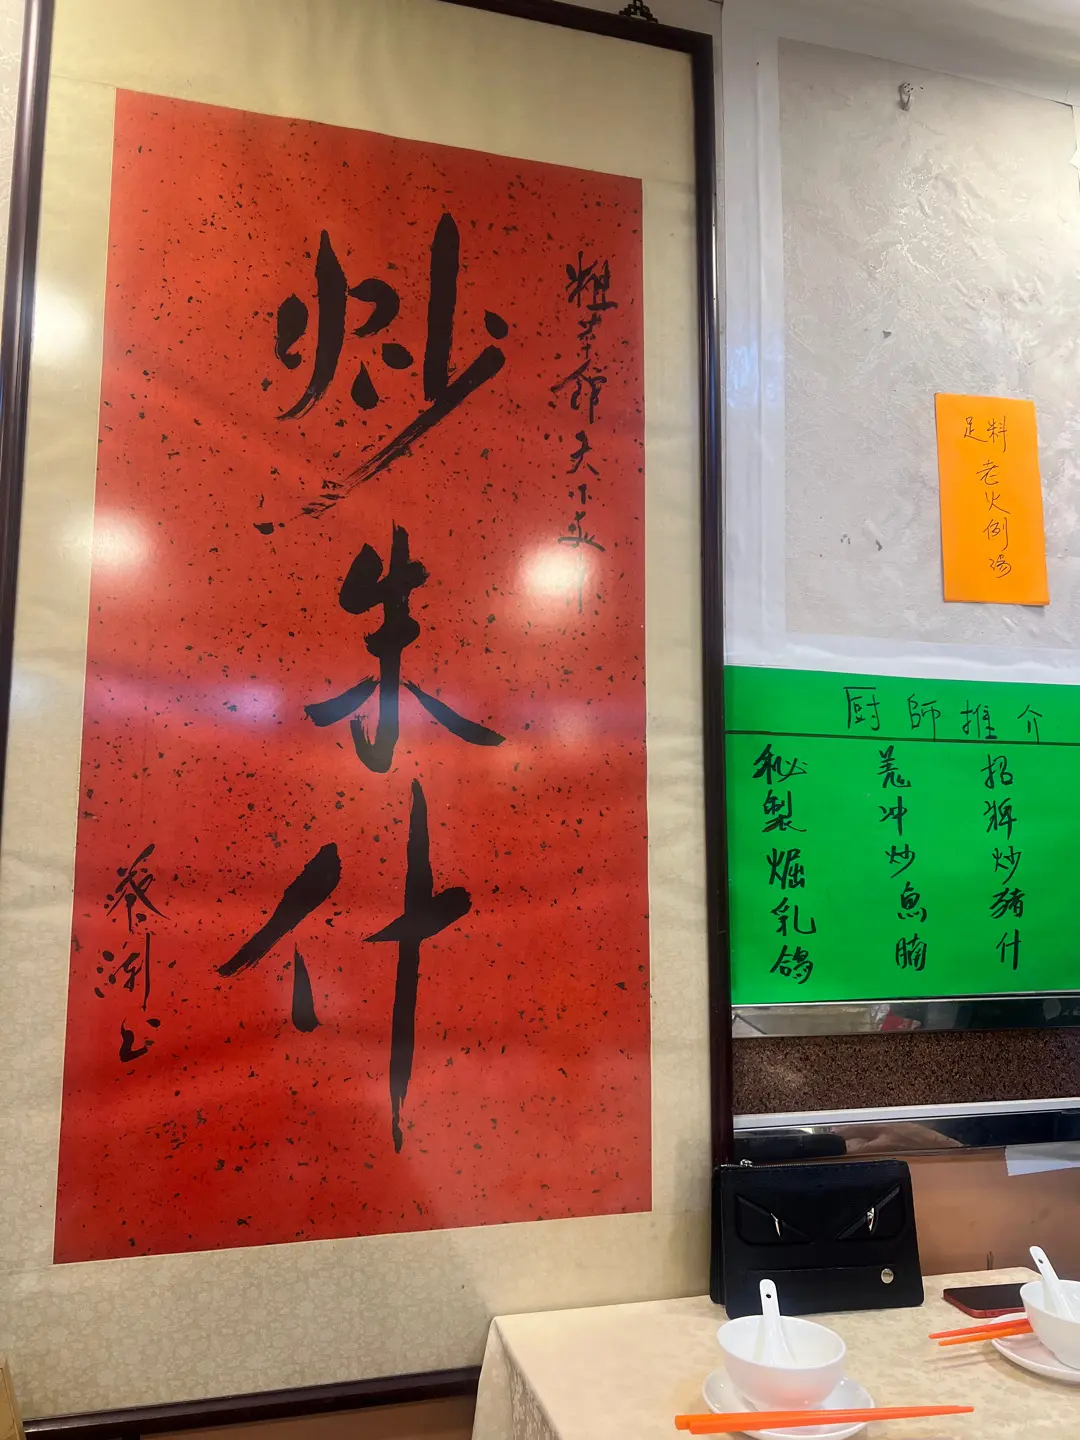 粗菜館天下
炒朱什
蔡瀾书
足料
老火例湯
厨師推介
招牌炒豬什
羗冲炒魚腩
秘製焗乳鴿